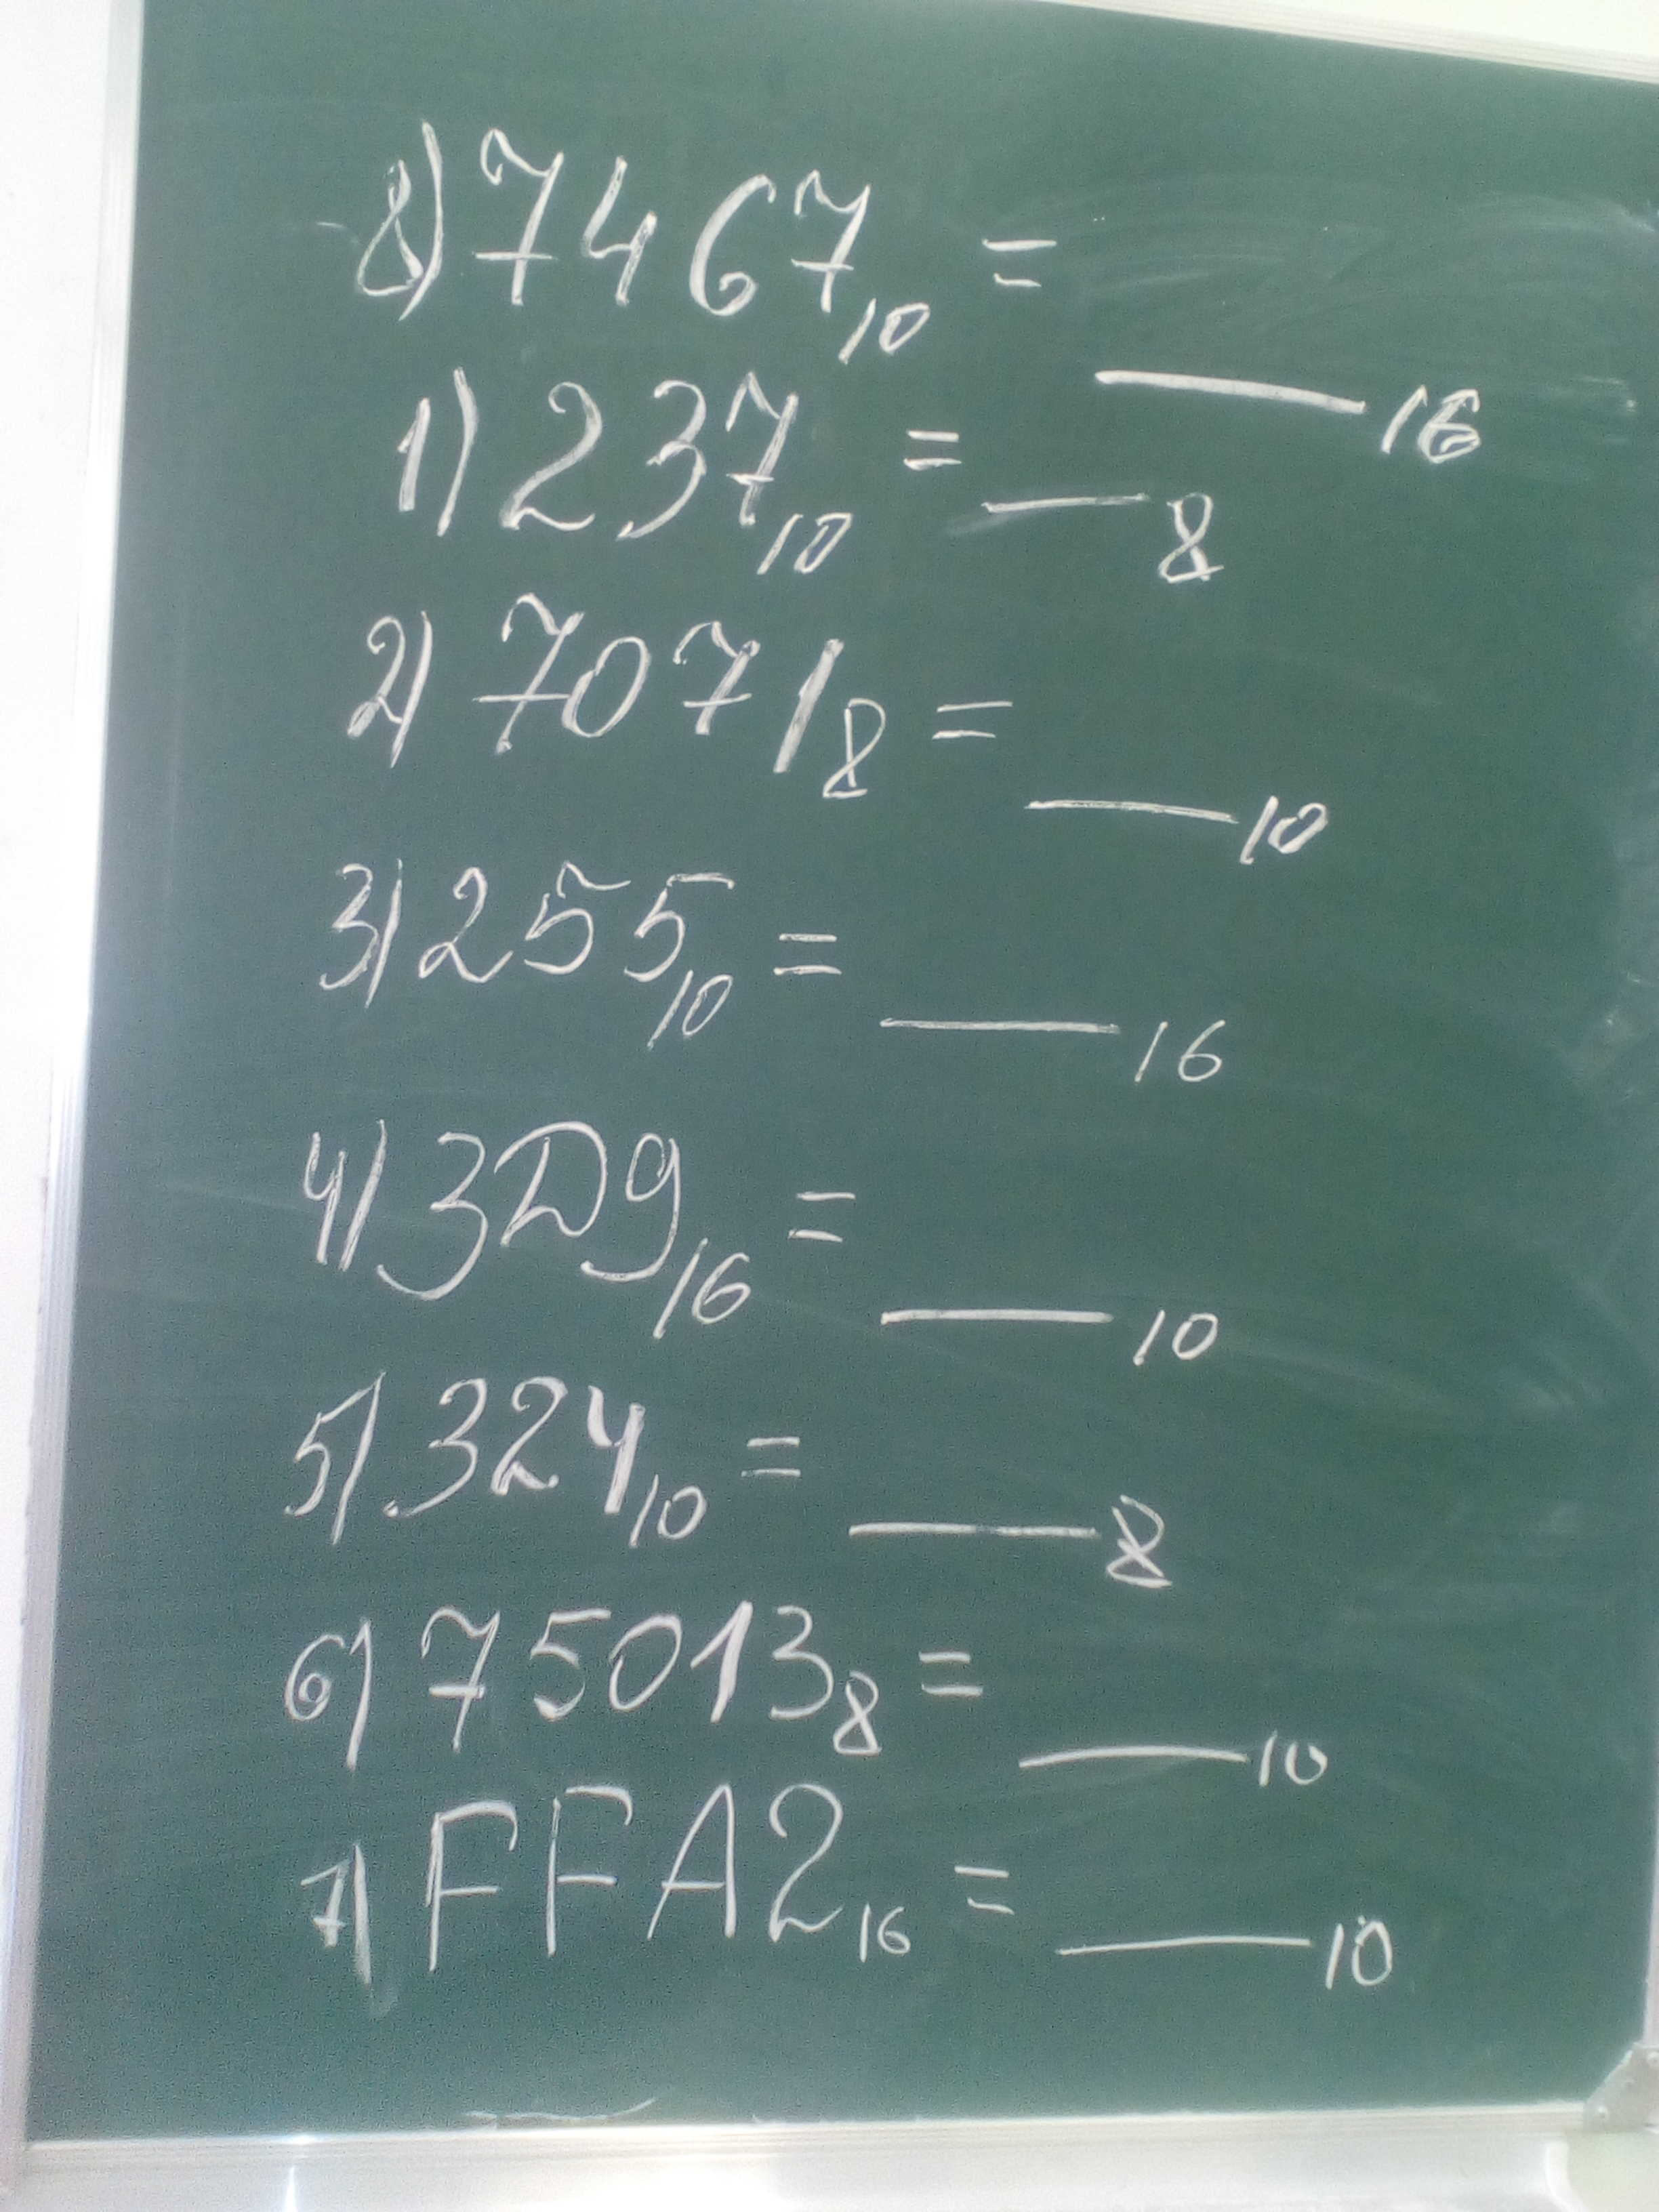 8) 7467₁₀ = ___₁₆
1) 237₁₀ = ___₈
2) 7071₈ = ___₁₀
3) 255₁₀ = ___₁₆
4) 3D9₁₆ = ___₁₀
5) 324₁₀ = ___₈
6) 75013₈ = ___₁₀
7) FFA2₁₆ = ___₁₀